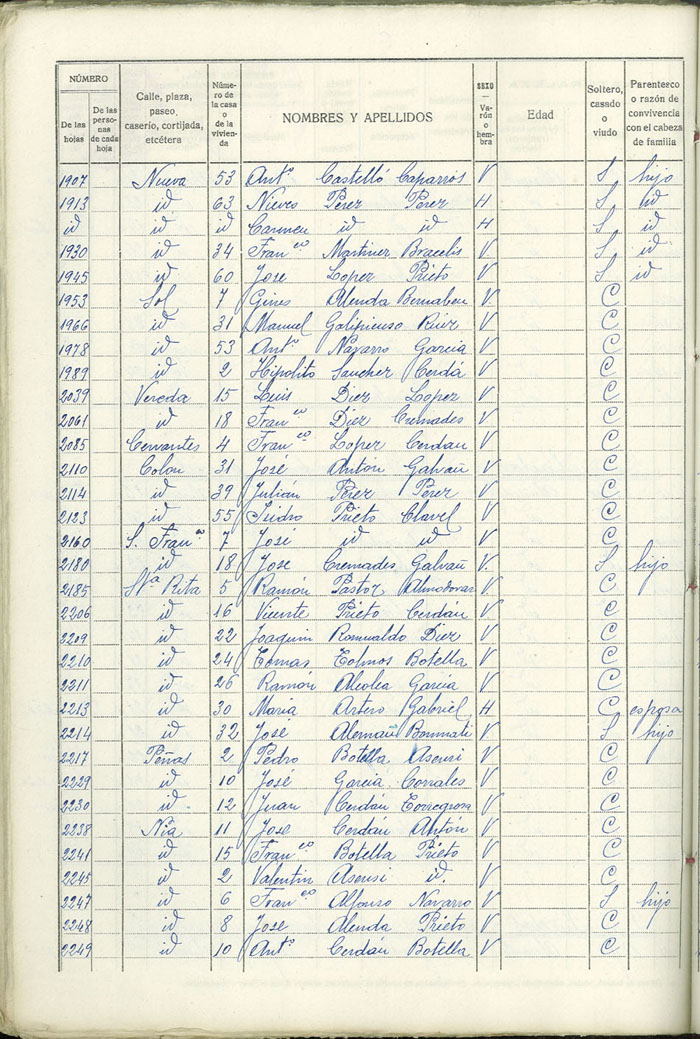 NÚMERO
De las hojas
De las personas de cada hoja
Calle, plaza, paseo, caserío, cortijada, etcétera
Número de la casa o de la vivienda
NOMBRES Y APELLIDOS
SEXO — Varón o hembra
Edad
Soltero, casado o viudo
Parentesco o razón de convivencia con el cabeza de familia
1907 Nueva 53 Antº Castelló Caparrós V S hijo
1913 id 63 Nieves Perez Perez H S id
id id id Carmen id id H S id
1930 id 34 Franco Martinez Bracelis V S id
1945 id 60 Jose Lopez Prieto V S id
1953 Sol 7 Gines Alenda Bernabeu V C
1966 id 31 Manuel Galipienso Ruiz V C
1978 id 53 Antº Navarro Garcia V C
1989 id 2 Hipolito Sanchez Cerdá V C
2039 Vereda 15 Luis Diez Lopez V C
2061 id 18 Franco Diez Cremades V C
2085 Cervantes 4 Franco Lopez Cerdan V C
2110 Colon 31 José Antón Galvañ V C
2114 id 39 Julián Pérez Pérez V C
2123 id 55 Isidro Prieto Clavel V C
2160 S. Franco 7 José id id V C
2180 id 18 Jose Cremades Galvañ V S hijo
2185 Sta Rita 5 Ramón Pastor Almodovar V C
2206 id 16 Vicente Prieto Cerdán V C
2209 id 22 Joaquin Romualdo Diez V C
2210 id 24 Tomas Tolmos Botella V C
2211 id 26 Ramón Alcolea Garcia V C
2213 id 30 Maria Artero Gabriel H C esposa
2214 id 32 José Alemañ Bonmati V S hijo
2217 Peñas 2 Pedro Botella Asensi V C
2229 id 10 José Garcia Corrales V C
2230 id 12 Juan Cerdán Torregrosa V C
2238 11 Jose Cerdán Antón V C
2241 id 15 Franco Botella Prieto V C
2245 id 2 Valentin Asensi id V C
2247 id 6 Franco Alfonso Navarro V S hijo
2248 id 8 Jose Alenda Prieto V C
2249 id 10 Antº Cerdán Botella V C